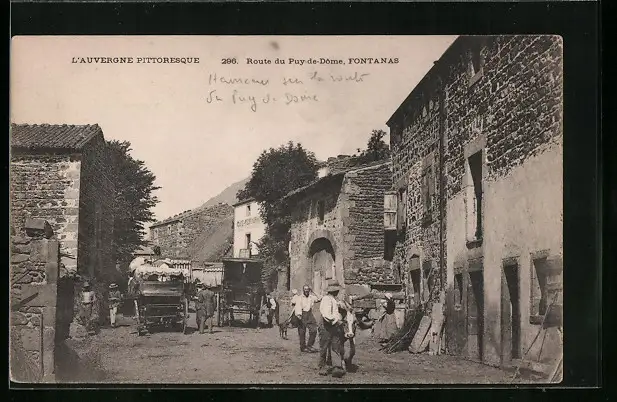 L'AUVERGNE PITTORESQUE
296. Route du Puy-de-Dôme, FONTANAS
Hameau sur la route
du Puy de Dôme